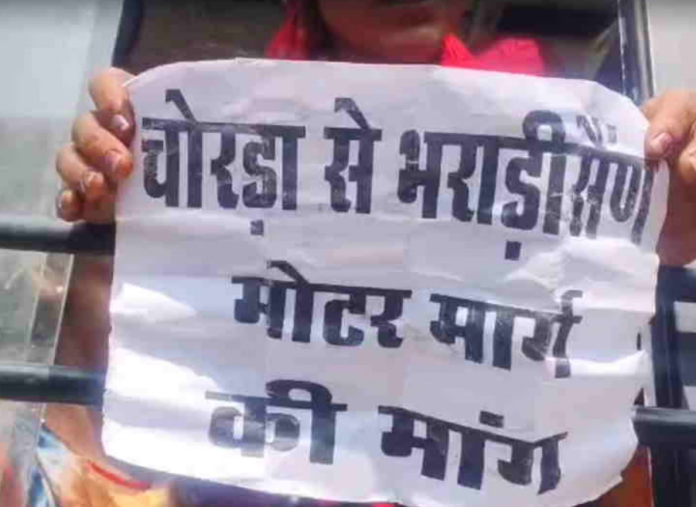 चोरड़ा से भराड़ीसैंण
मोटर मार्ग
की मांग